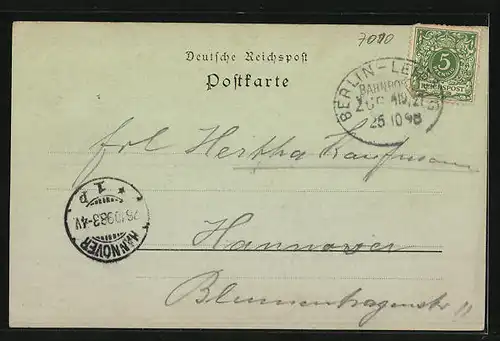 7010
Deutsche Reichspost
Postkarte
5
REICHSPOST
BERLIN-
BAHNPOST
ZUG
25 10 98
Frl Hertha Kaufmann
1 P
HANNOVER
Hannover
Blumenhagenstr 11